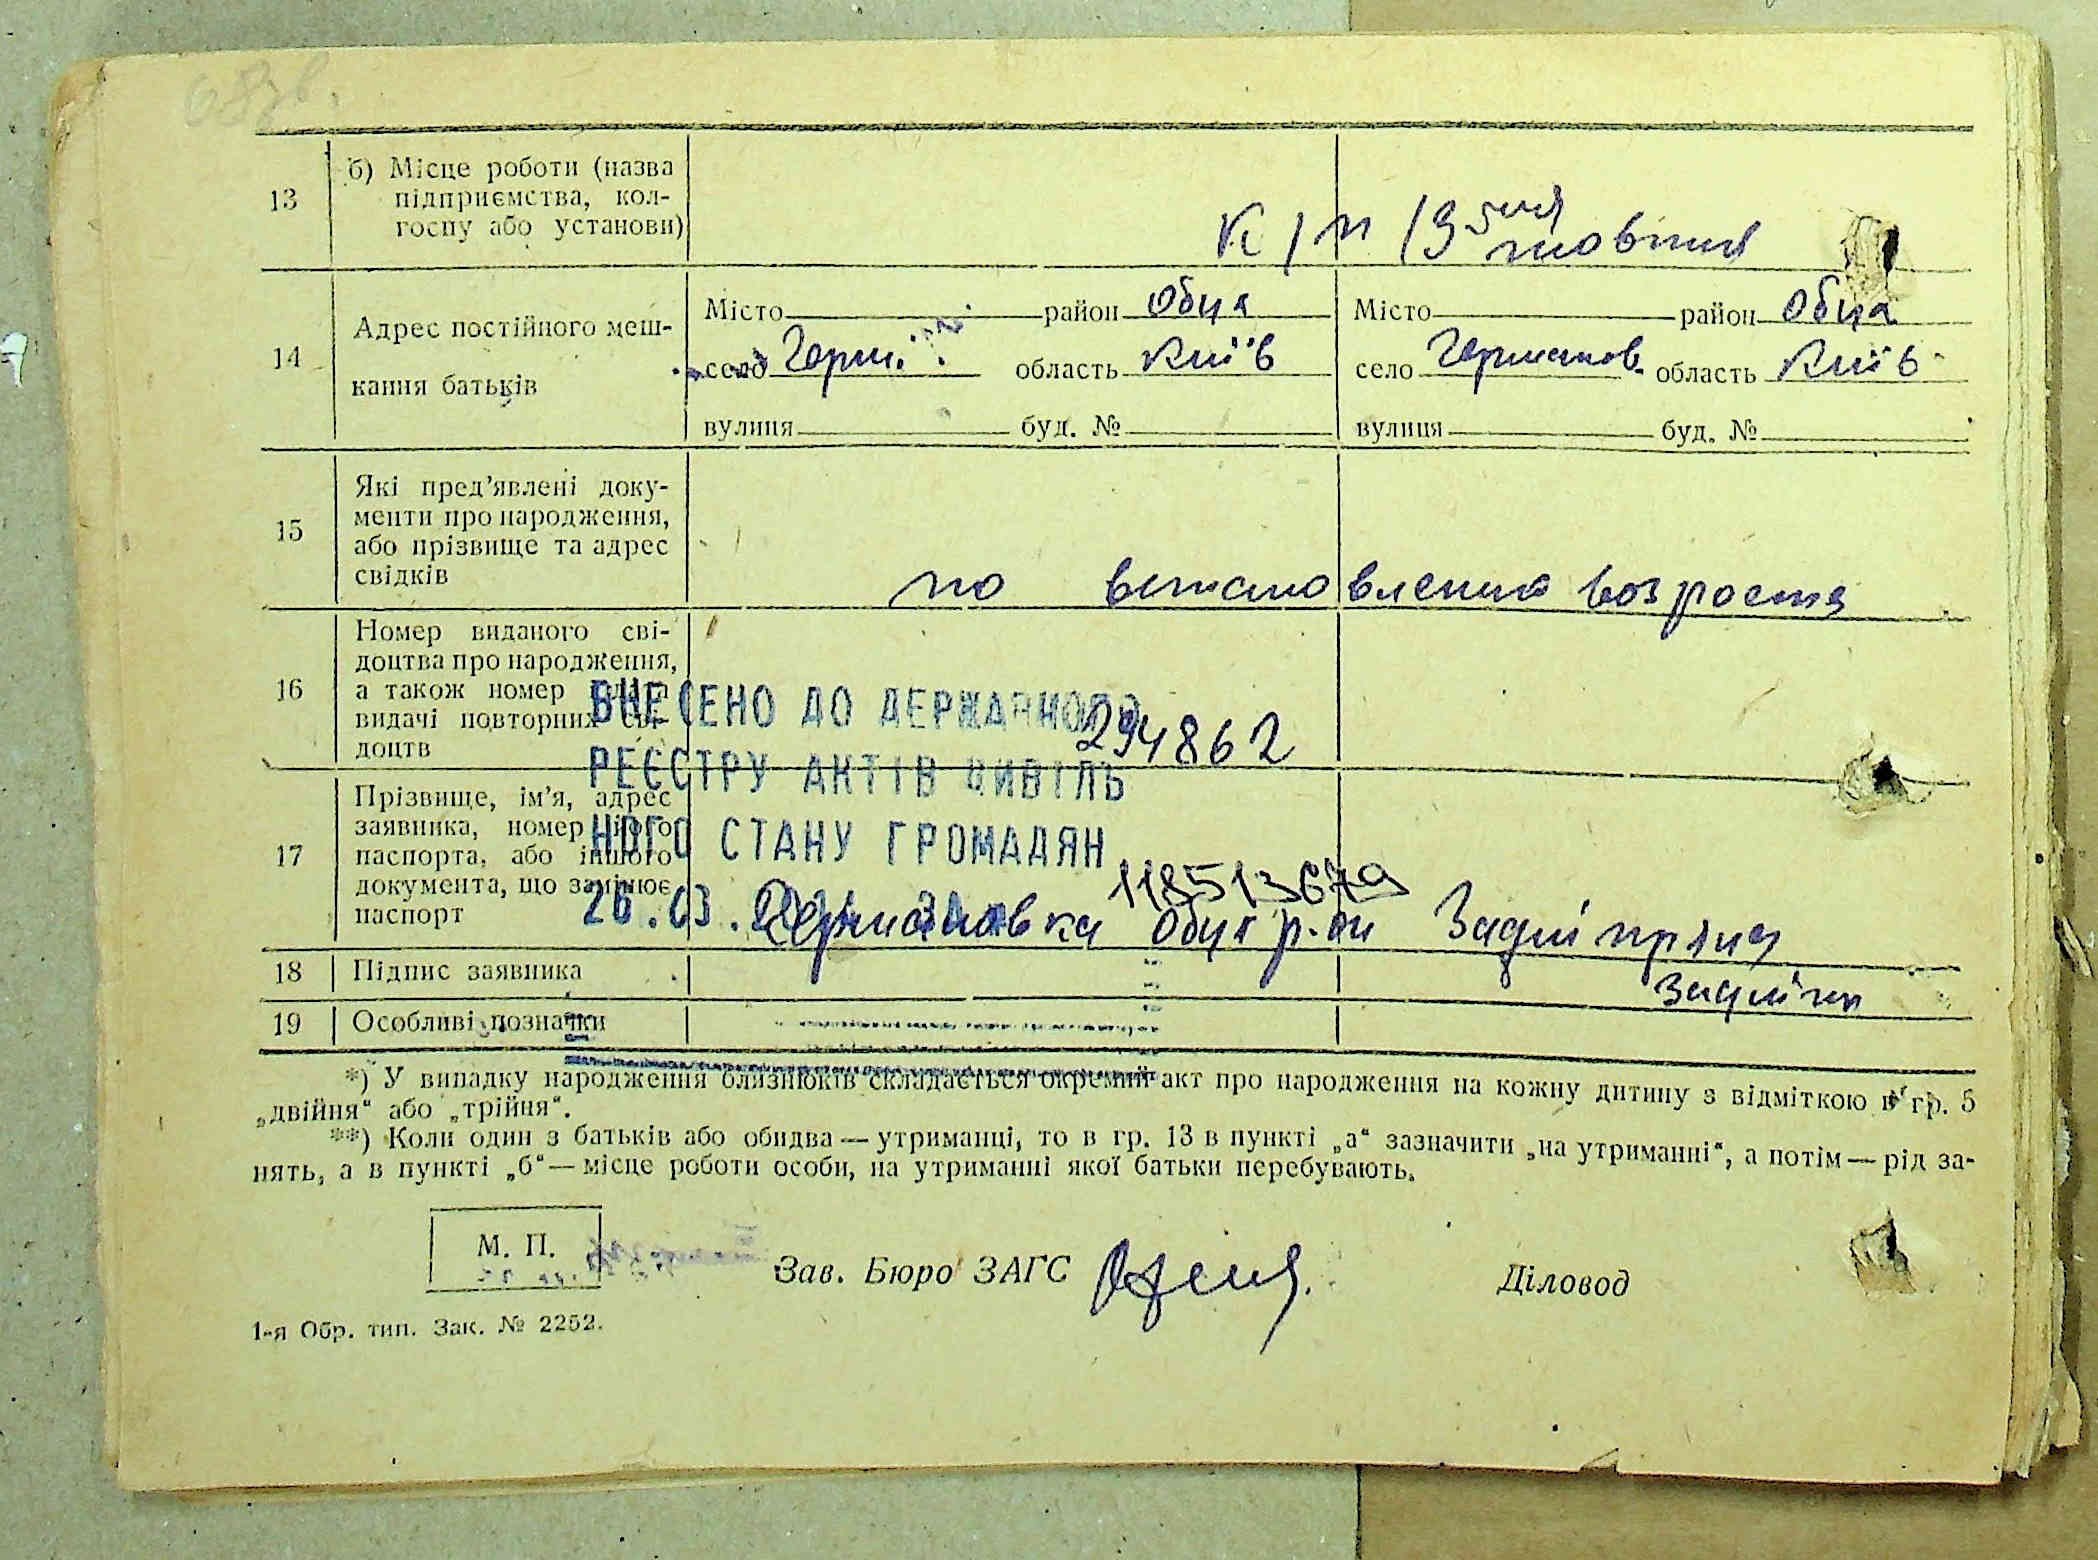 68зв.
13
б) Місце роботи (назва
підприємства, кол-
госпу або установи)
к/п 19 жовтня
14
Адрес постійного меш-
кання батьків
Місто район Обух
село Герм. область Київ
вулиця буд. №
Місто район Обух
село Германов. область Київ
вулиця буд. №
15
Які пред'явлені доку-
менти про народження,
або прізвище та адрес
свідків
по встановленню возроста
16
Номер виданого сві-
доцтва про народження,
а також номер
видачі повторних сві-
доцтв
294862
ВНЕСЕНО ДО ДЕРЖАВНОГО
РЕЄСТРУ АКТІВ ЦИВІЛЬ
НОГО СТАНУ ГРОМАДЯН
26.03.
17
Прізвище, ім'я, адрес
заявника, номер його
паспорта, або іншого
документа, що замінює
паспорт
118513679
Германовка Обух р-ни
18
Підпис заявника
19
Особливі позначки
*) У випадку народження близнюків складається окремий акт про народження на кожну дитину з відміткою в гр. 5
„двійня“ або „трійня“.
**) Коли один з батьків або обидва — утриманці, то в гр. 13 в пункті „а“ зазначити „на утриманні“, а потім — рід за-
нять, а в пункті „б“ — місце роботи особи, на утриманні якої батьки перебувають.
М. П.
Зав. Бюро ЗАГС
Діловод
1-я Обр. тип. Зак. № 2252.